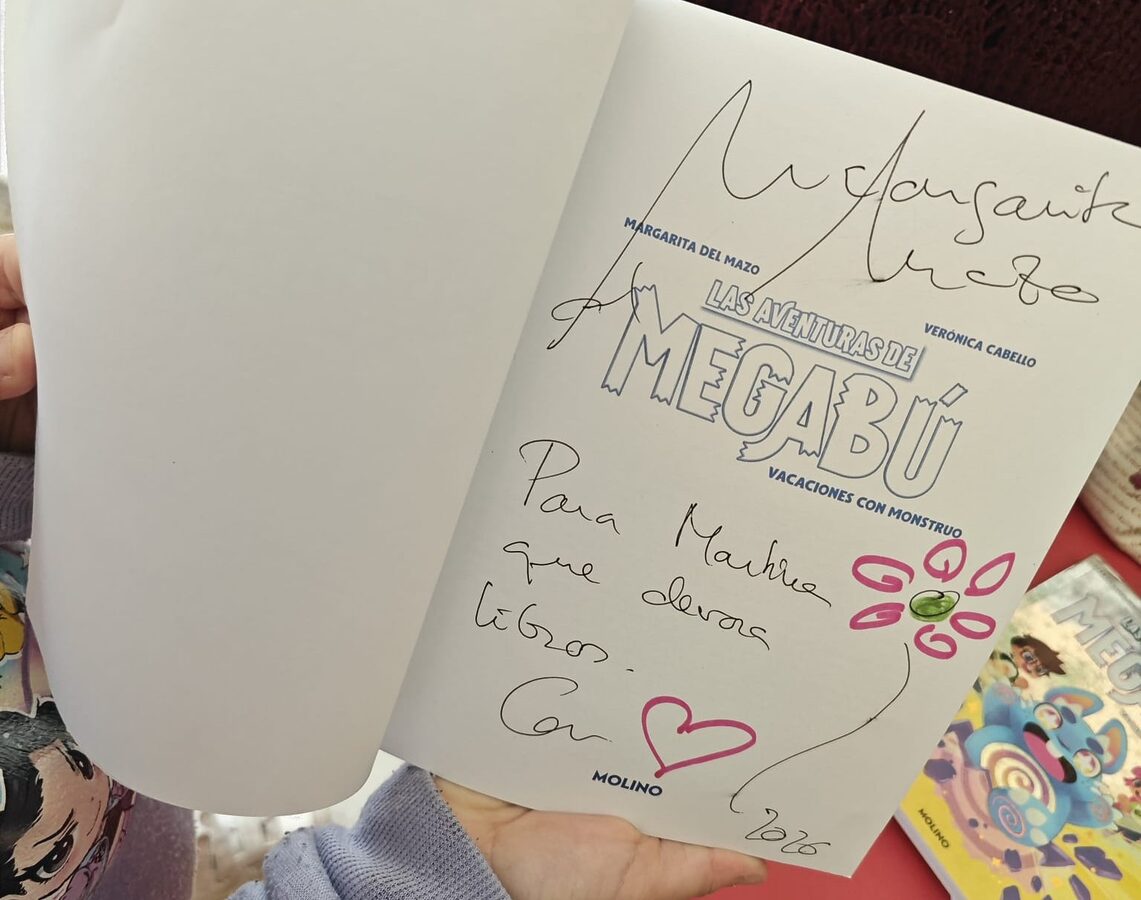 Margarita
Mazo
MARGARITA DEL MAZO
VERÓNICA CABELLO
LAS AVENTURAS DE
MEGABÚ
VACACIONES CON MONSTRUO
Para Martina
que devora
libros.
Con
MOLINO
2026
MEG
MOLINO